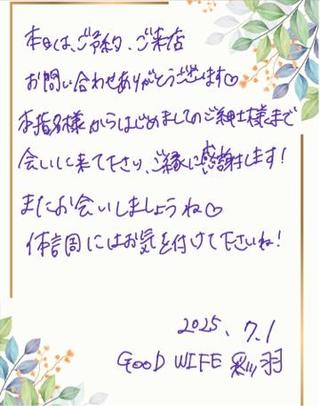 本日は、ご予約、ご来店
お問い合わせありがとうございます♡
本指名様からはじめましてのご紳士様まで
会いに来て下さり、ご縁に感謝します!
またお会いしましょうね♡
体調にはお気を付けて下さいね!
2025. 7.1
GOOD WIFE 羽